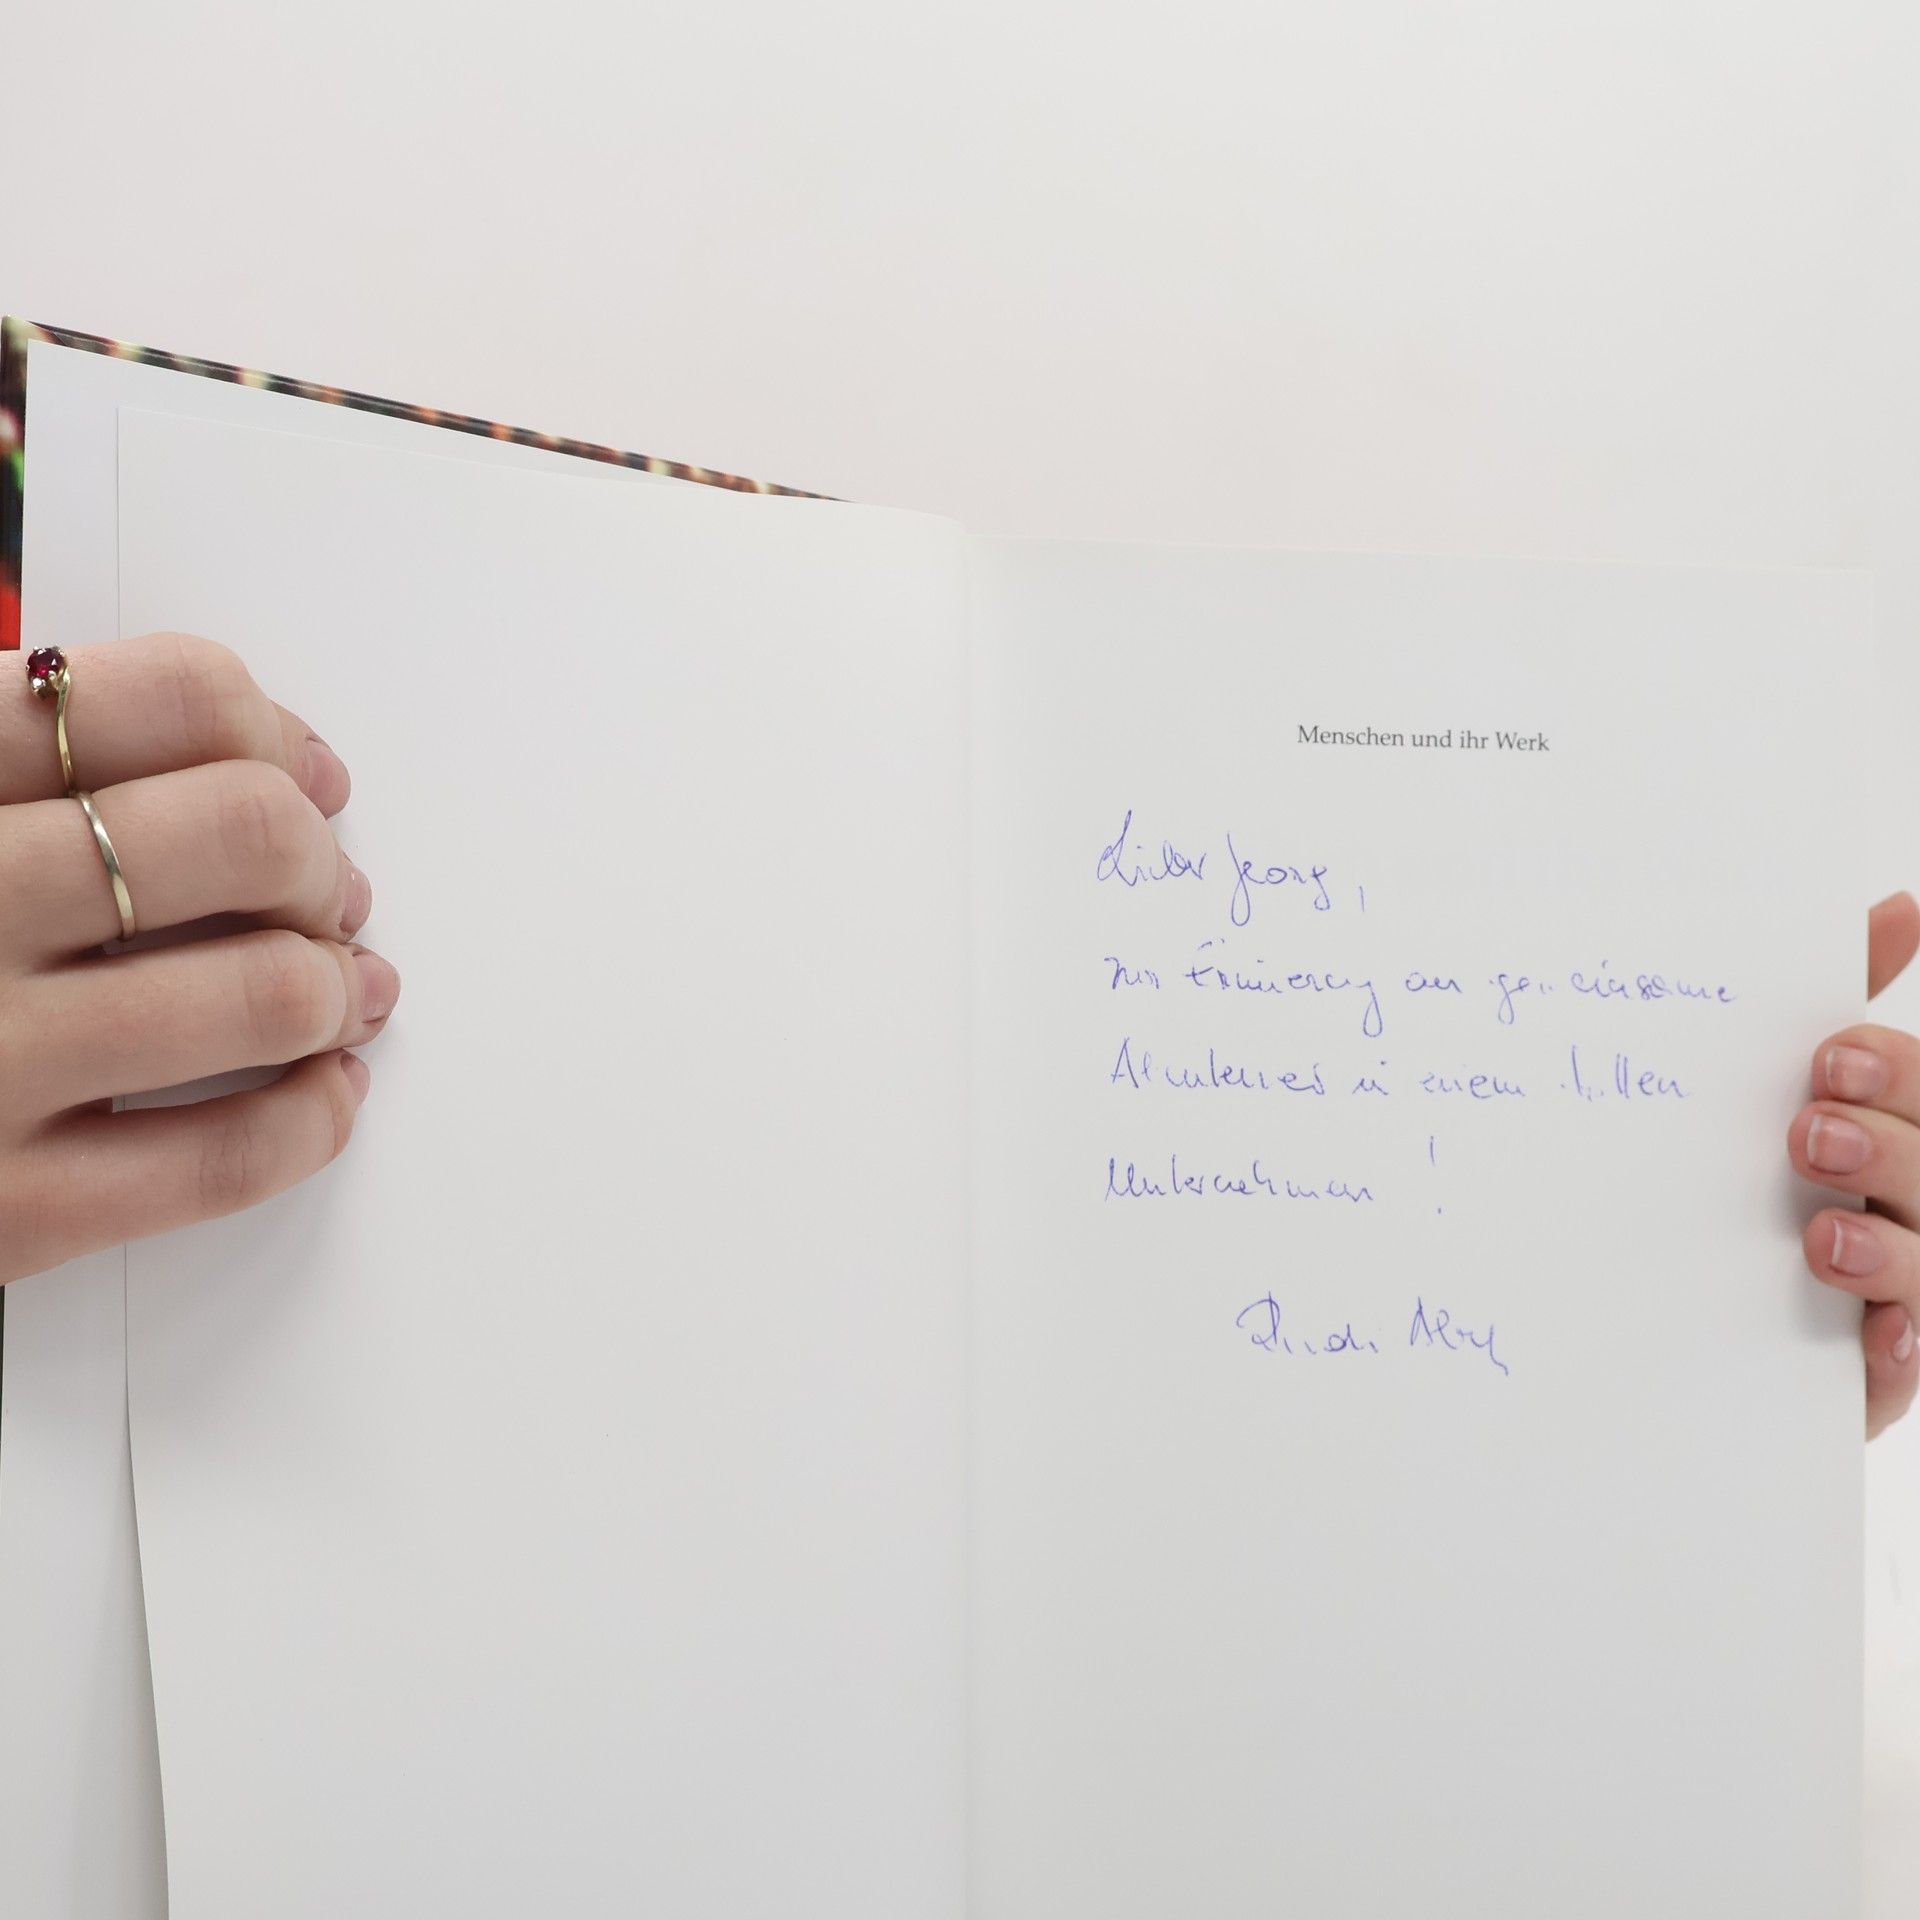 Menschen und ihr Werk
Lieber Georg,
zur Erinnerung an gemeinsame
Abenteuer in einem tollen
Unternehmen!
Rudi